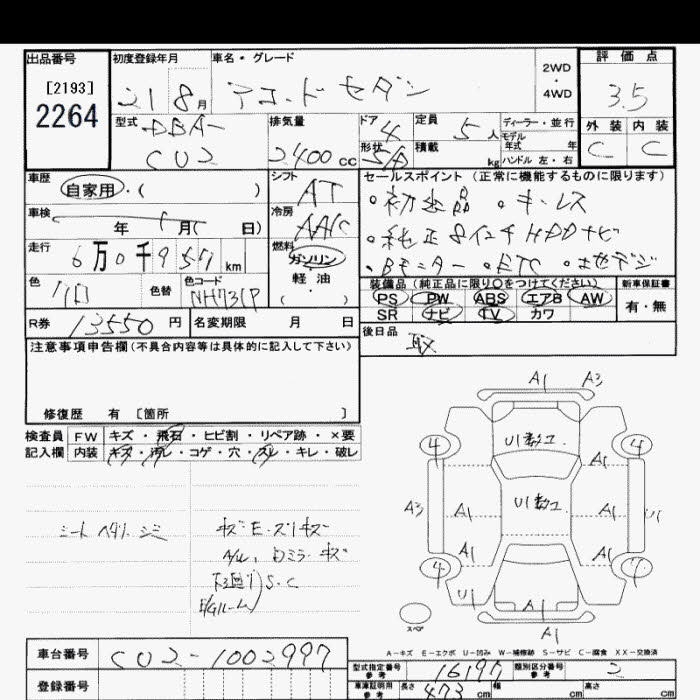 出品番号 初度登録年月 車名・グレード 2WD・4WD 評価点
[2193]
2264 21 8月 アコードセダン 3.5
型式 DBA- CU2 排気量 2400cc ドア 4 形状 定員 5人 積載 kg ディーラー・並行 モデル年式 年 ハンドル 左・右 外装 C 内装 C
車歴 自家用・( ) シフト AT セールスポイント(正常に機能するものに限ります)
車検 年 月( 日) 冷房 AAC ・キーレス
走行 6万0千957km 燃料 ガソリン 軽油 ( ) ・純正8インチHDDナビ
・Bモニター ・ETC ・地デジ
色 クロ 色替 色コード NH731P 装備品(純正品に限り○をつけてください) 新車保証書
PS PW ABS エアB AW 有・無
SR ナビ TV カワ
R券 13550円 名変期限 月 日 後日品 取
注意事項申告欄(不具合内容等は具体的に記入して下さい)
修復歴 有 [箇所 ]
検査員記入欄 FW キズ・飛石・ヒビ割・リペア跡・×要
内装 キズ・汚レ・コゲ・穴・スレ・キレ・破レ
シートヘタリ・シミ
キズ・E・スリキズ
A/W、Dミラーキズ
下廻り)S.C
E/Gルーム)
A1 A3
4 U1数コ 4
A1
A3 A1 U1数コ A1 U1
A1 A1
4 4
U1 A1
スペア A1
A-キズ E-エクボ U-凹み W-補修跡 S-サビ C-腐食 XX-交換済
車台番号 CU2-1002997
型式指定番号 16197 類別区分番号 2
登録番号 車庫証明用参考 長さ 473cm 幅 cm 高さ cm